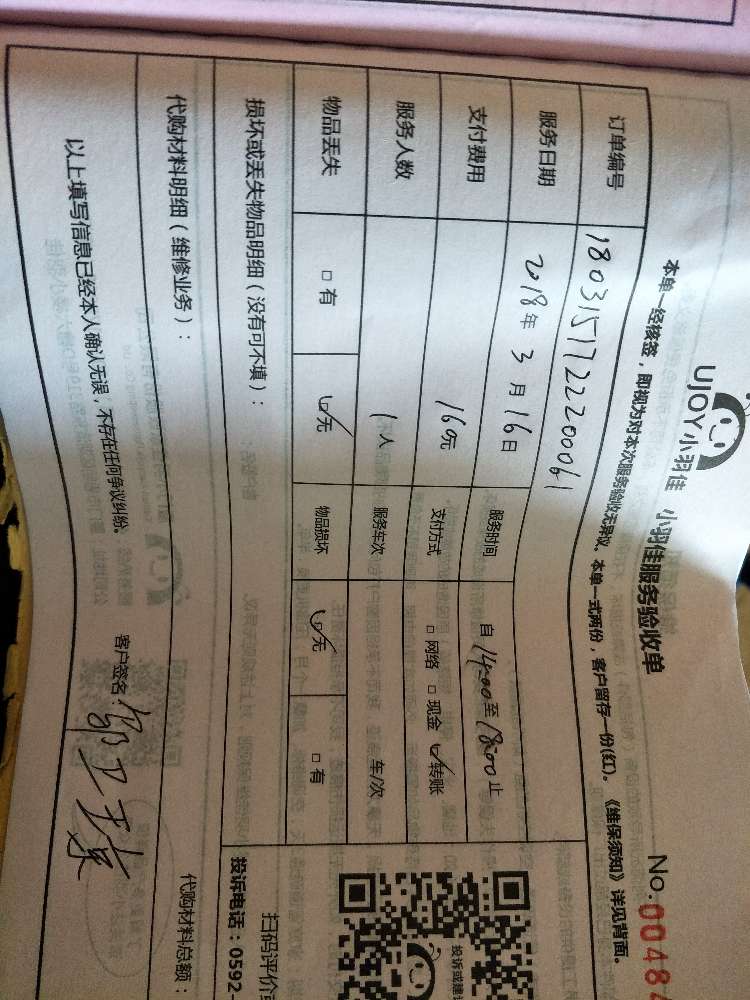 UJOY小羽佳 小羽佳服务验收单
No.0048
本单一经核签，即视为对本次服务验收无异议。本单一式两份，客户留存一份(红)。《维保须知》详见背面。
订单编号 180315172220061
服务日期 2018年3月16日 服务时间 自 14:00 至 18:00 止
支付费用 160元 支付方式 □ 网络 □ 现金 ☑ 转账
服务人数 1人 服务车次 车/次
物品丢失 □ 有 ☑ 无 物品损坏 ☑ 无 □ 有
损坏或丢失物品明细（没有可不填）：
投诉或建议
UJOY
扫码评价或
投诉电话：0592-
代购材料明细（维修业务）：
代购材料总额：
以上填写信息已经本人确认无误，不存在任何争议纠纷。 客户签名：